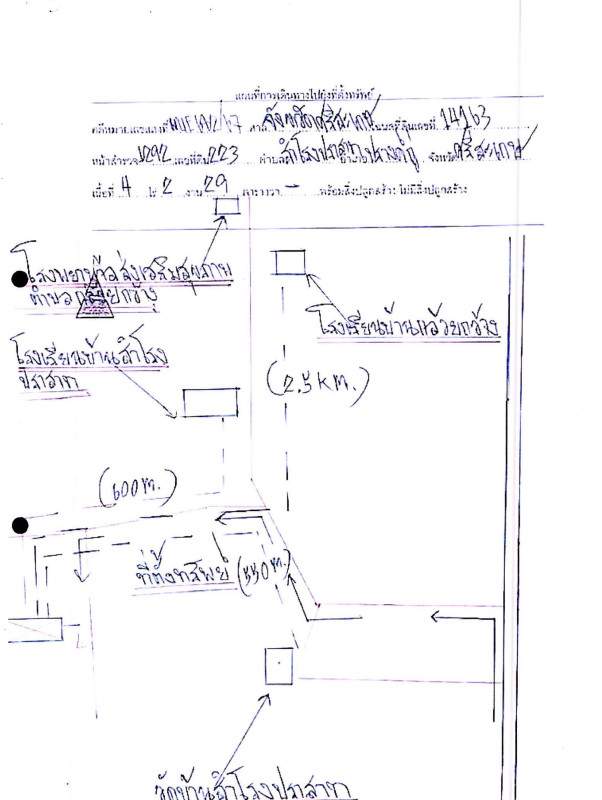 แผนที่การเดินทางไปยังที่ตั้งทรัพย์
จังหวัดศรีสะเกษ 14163
หน้าสำรวจ 1292 เลขที่ดิน 223 ตำบล สำโรงปราสาท อำเภอ ปรางค์กู่ จังหวัด ศรีสะเกษ
เนื้อที่ 4 ไร่ 2 งาน 29 ตารางวา - พร้อมสิ่งปลูกสร้าง/ไม่มีสิ่งปลูกสร้าง
โรงพยาบาลส่งเสริมสุขภาพ
ตำบลกล้วยกว้าง
โรงเรียนบ้านกล้วยกว้าง
โรงเรียนบ้านสำโรง
ปราสาท
(2.5 km.)
(600 m.)
ที่ตั้งทรัพย์ (550 m.)
วัดบ้านสำโรงปราสาท